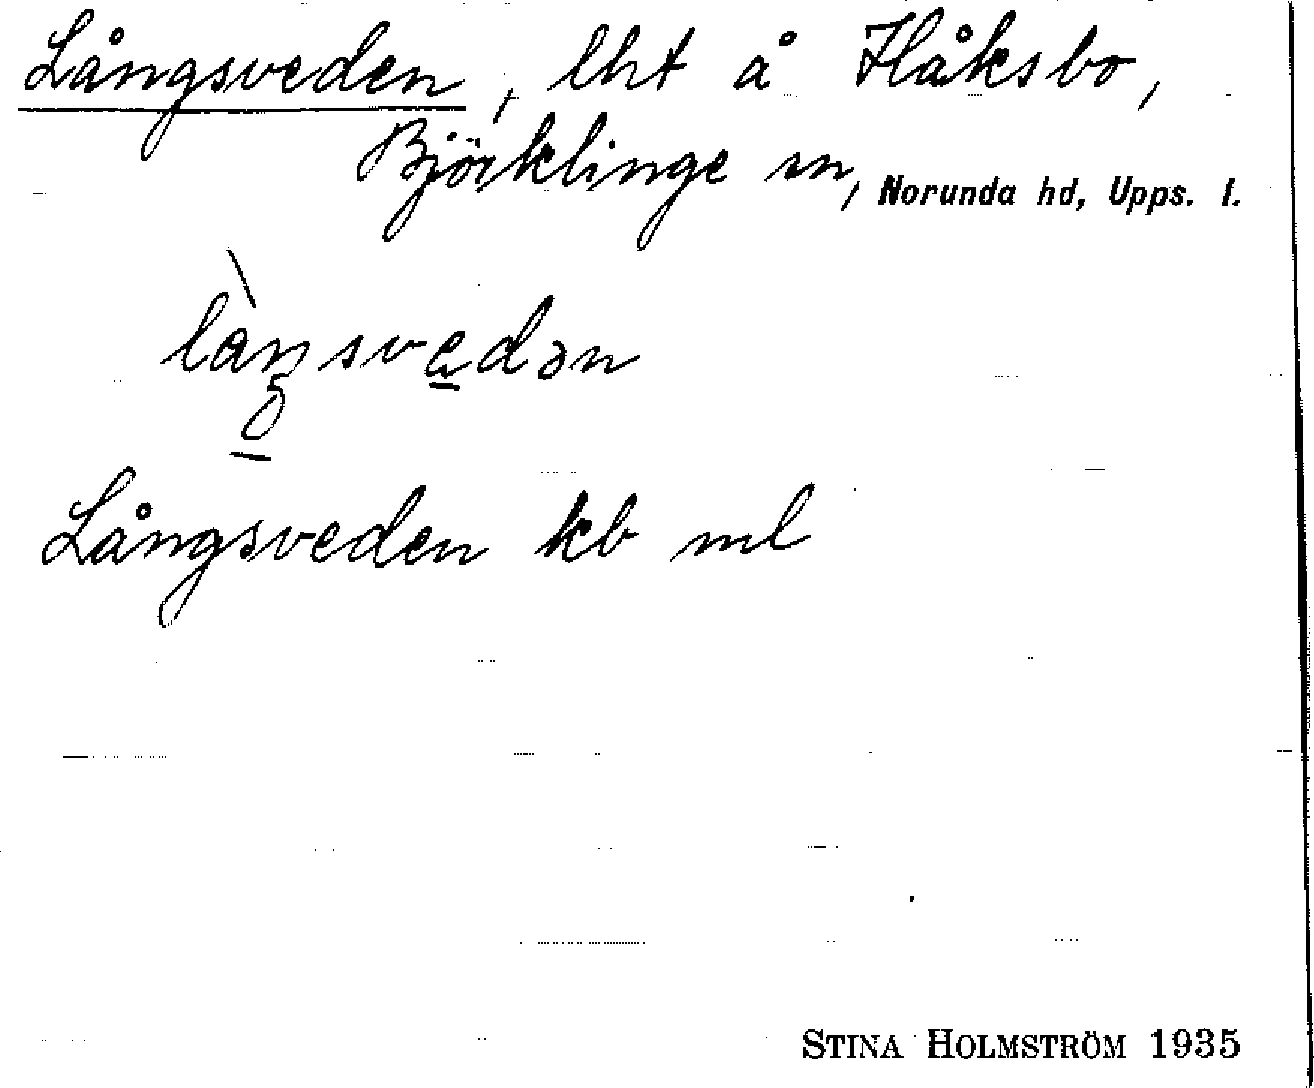 Långsveden, lht å Håksbo,
Björklinge sn, Norunda hd, Upps. l.
làŋsvedən
Långsveden kb ml
STINA HOLMSTRÖM 1935